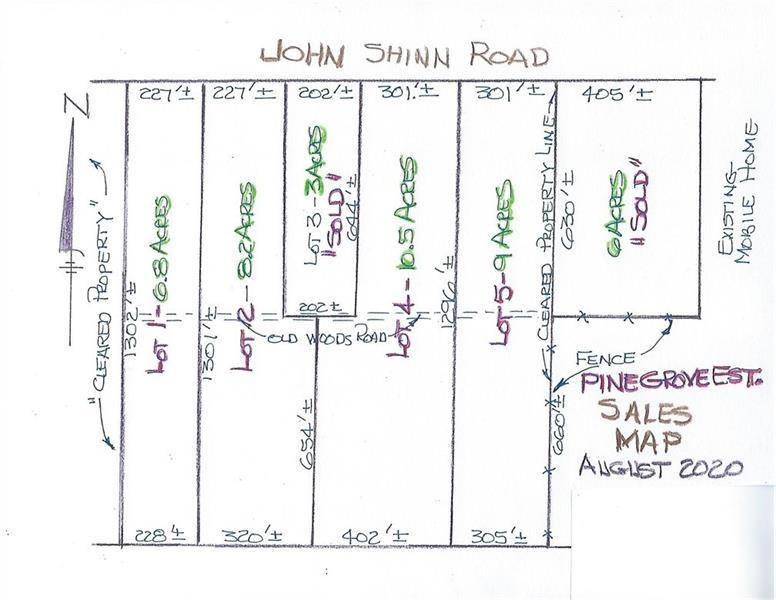 JOHN SHINN ROAD
227'±
227'±
202'±
301'±
301'±
405'±
N
"CLEARED PROPERTY"
1302'±
LOT 1 - 6.8 ACRES
1301'±
LOT 2 - 8.2 ACRES
LOT 3 - 3 ACRES
"SOLD"
644'±
202±
LOT 4 - 10.5 ACRES
1296'±
LOT 5 - 9 ACRES
CLEARED PROPERTY LINE
630'±
6 ACRES
"SOLD"
EXISTING
MOBILE HOME
OLD WOODS ROAD
654'±
660'±
FENCE
PINEGROVE EST.
SALES
MAP
AUGUST 2020
228'±
320'±
402'±
305'±